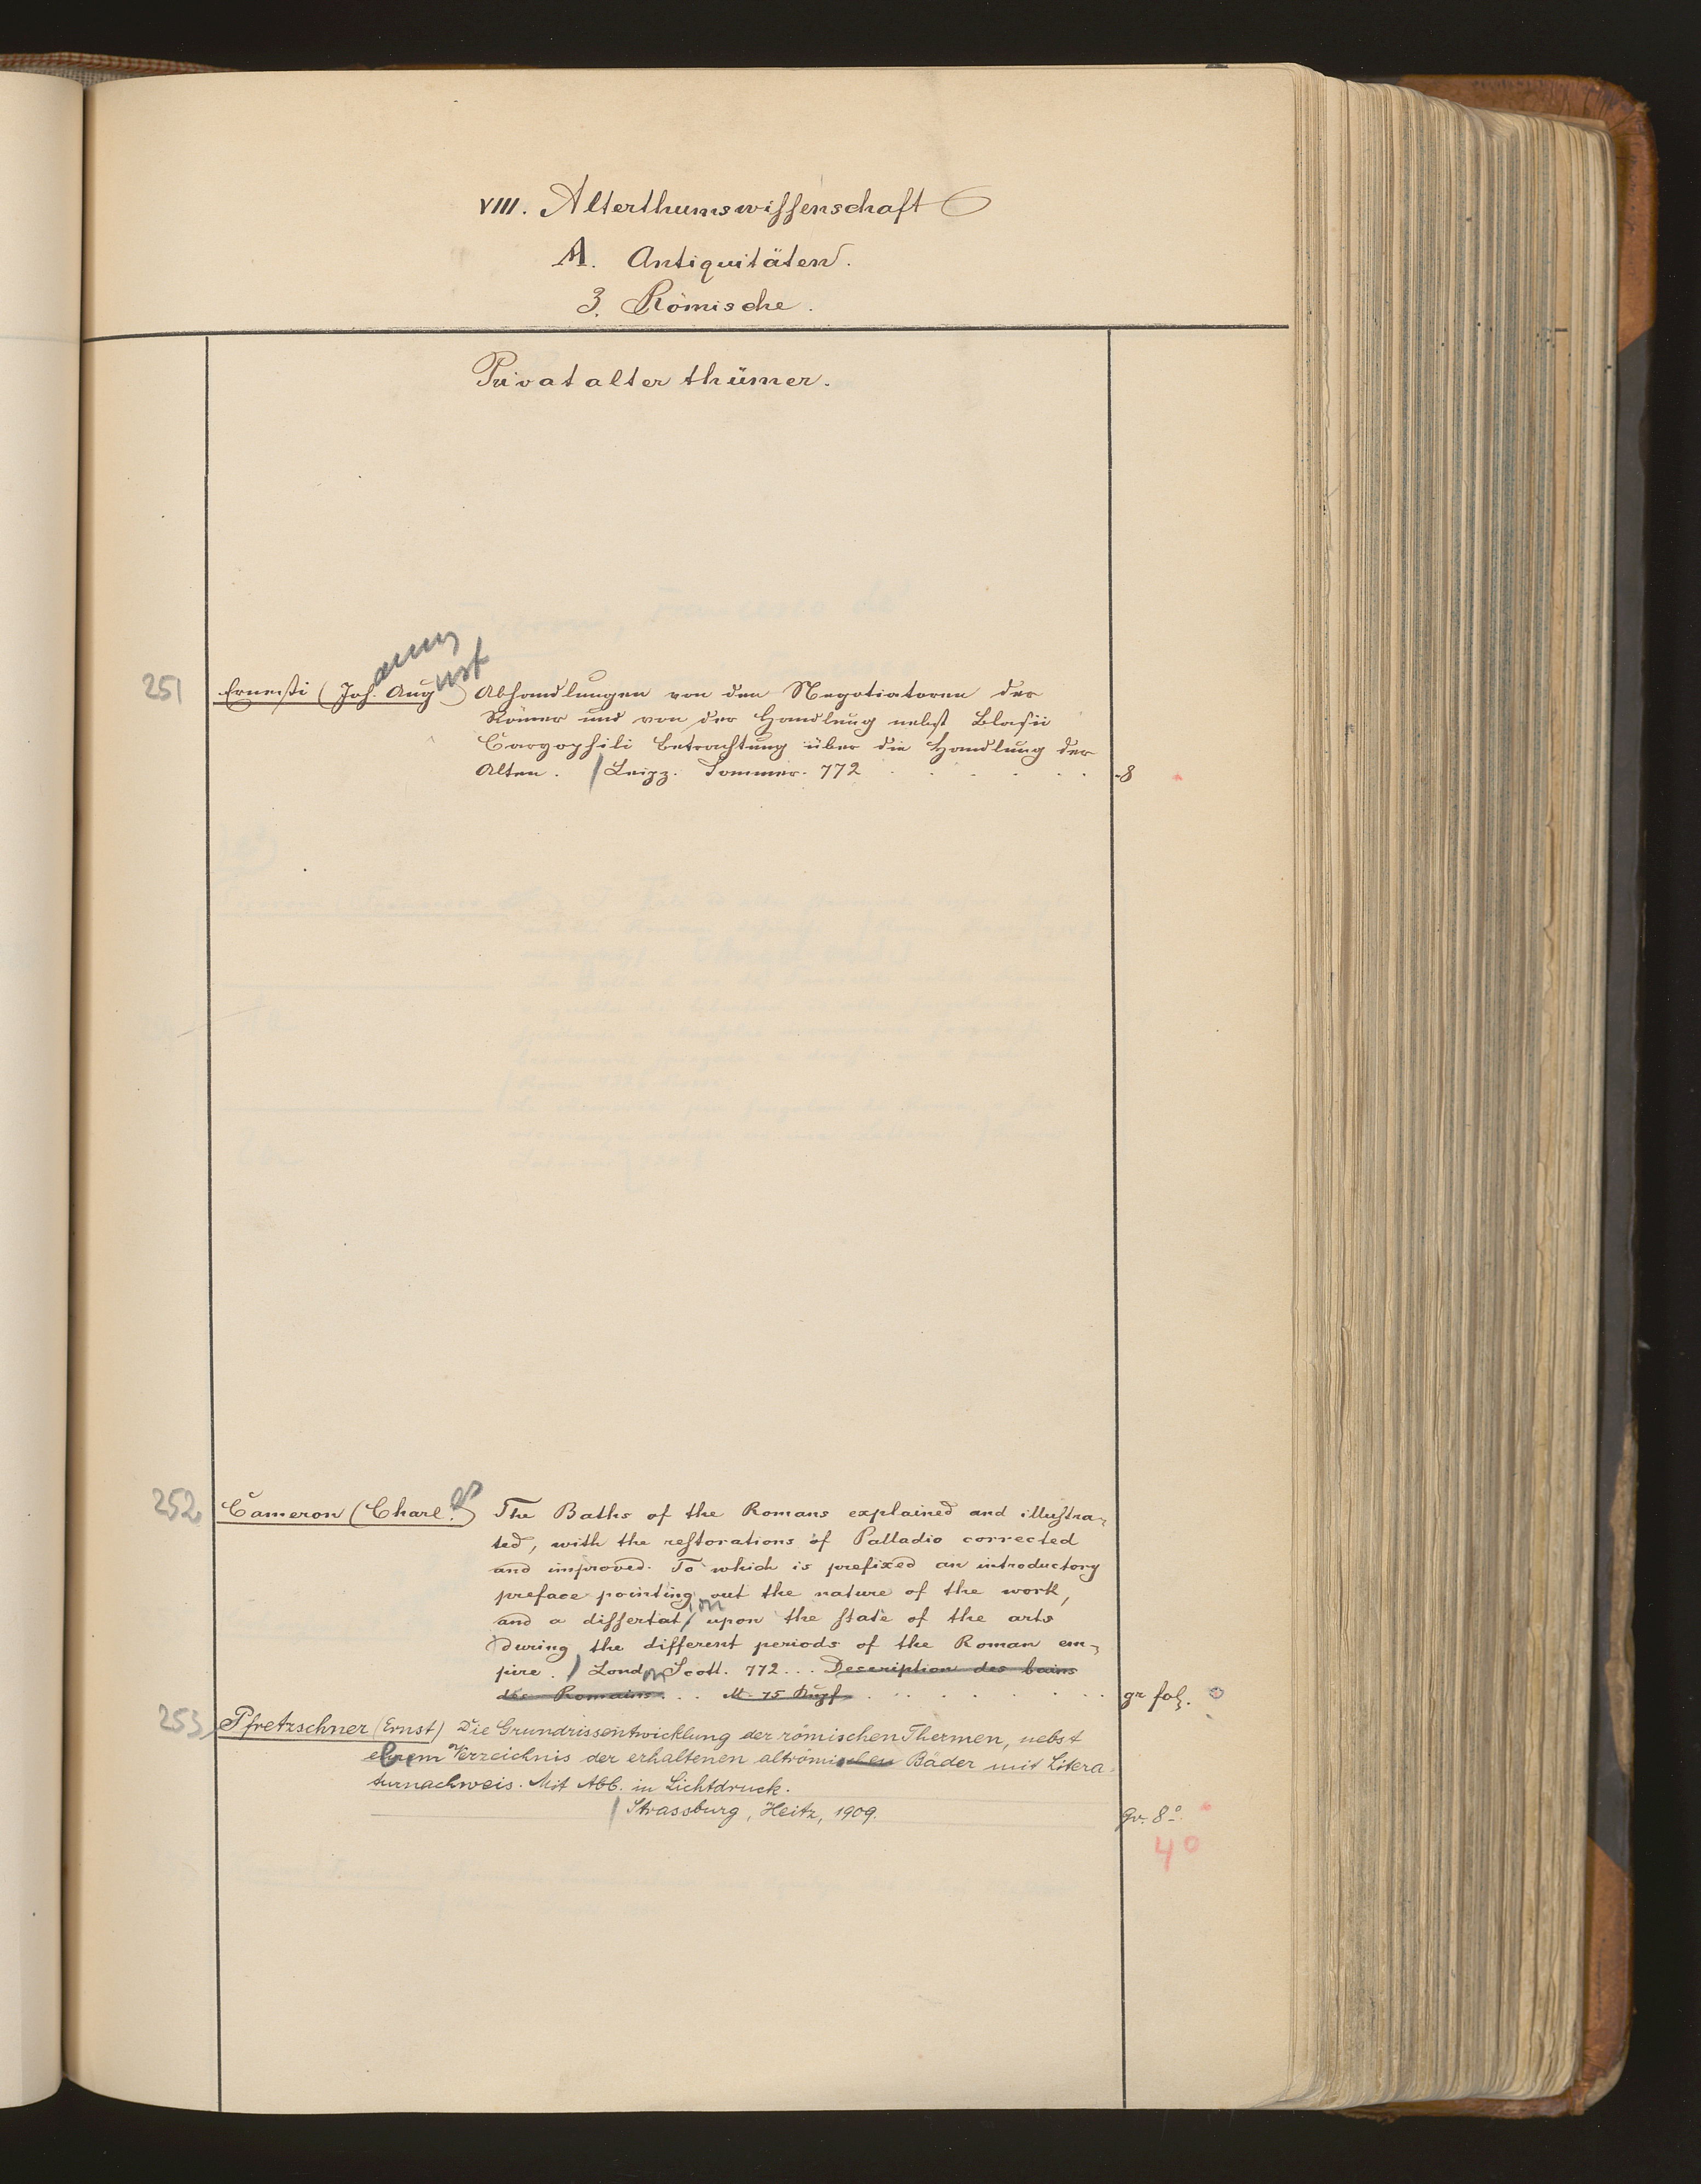 VIII. Alterthumswissenschaft
A. Antiquitäten.
3. Römische.
Privatalterthümer.
251 Ernesti (Joh.ann Aug.ust) Abhandlungen von den Negotiatoren der
Römer und von der Handlung nebst Blasii
Caryophili Betrachtung über die Handlung der
Alten. / Leipz. Sommer. 772 . . . . . . 8
252 Cameron (Charl.es) The Baths of the Romans explained and illustra-
ted, with the restorations of Palladio corrected
and improved. To which is prefixed an introductory
preface pointing out the nature of the work,
and a dissertation upon the state of the arts
during the different periods of the Roman em-
pire. / London Scott. 772... Description des bains
des Romains. . . M. 75 Kupf. . . . . . . gr fol.
253 Pfretzschner (Ernst) Die Grundrissentwicklung der römischen Thermen, nebst
einem Verzeichnis der erhaltenen altrömischen Bäder mit Litera-
turnachweis. Mit Abb. in Lichtdruck.
/ Strassburg, Heitz, 1909. gr. 8°
4°